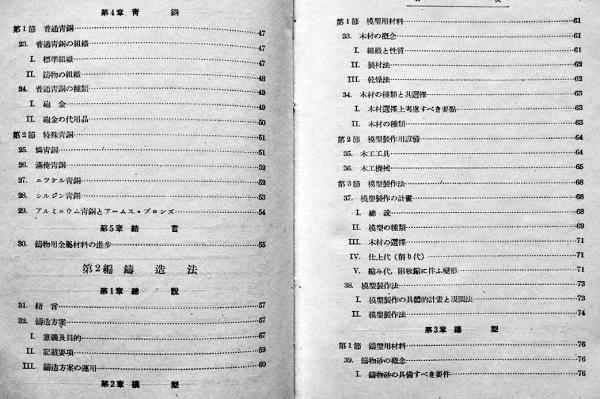 第4章 青 銅
第1節 普通青銅 47
23. 普通青銅の組織 47
I. 標準組織 47
II. 鋳物の組織 48
24. 普通青銅の種類 49
I. 砲 金 49
II. 砲金の代用品 50
第2節 特殊青銅 51
25. 燐青銅 51
26. 満俺青銅 52
27. ニツケル青銅 52
28. シルジン青銅 53
29. アルミニウム青銅とアームス・ブロンズ 54
第5章 結 言
30. 鋳物用金属材料の進歩 55
第2編 鋳 造 法
第1章 総 説
31. 緒 言 57
32. 鋳造方案 57
I. 意義及目的 57
II. 記載要項 59
III. 鋳造方案の運用 60
第2章 模 型
次
第1節 模型用材料 61
33. 木材の概念 61
I. 組織と性質 61
II. 製材法 62
III. 乾燥法 62
34. 木材の種類と其選択 63
I. 木材選択上考慮すべき要点 63
II. 木材の種類 63
第2節 模型製作用設備 64
35. 木工工具 64
36. 木工機械 65
第3節 模型製作法 68
37. 模型製作の計画 68
I. 総 説 68
II. 模型の種類 69
III. 木材の選択 71
IV. 仕上代(削り代) 71
V. 縮み代,収縮に伴ふ変形 71
38. 模型製作法 73
I. 模型製作の具体的計画と現図法 73
II. 模型製作法 74
第3章 鋳 型
第1節 鋳型用材料 76
39. 鋳物砂の概念 76
I. 鋳物砂の具備すべき要件 76